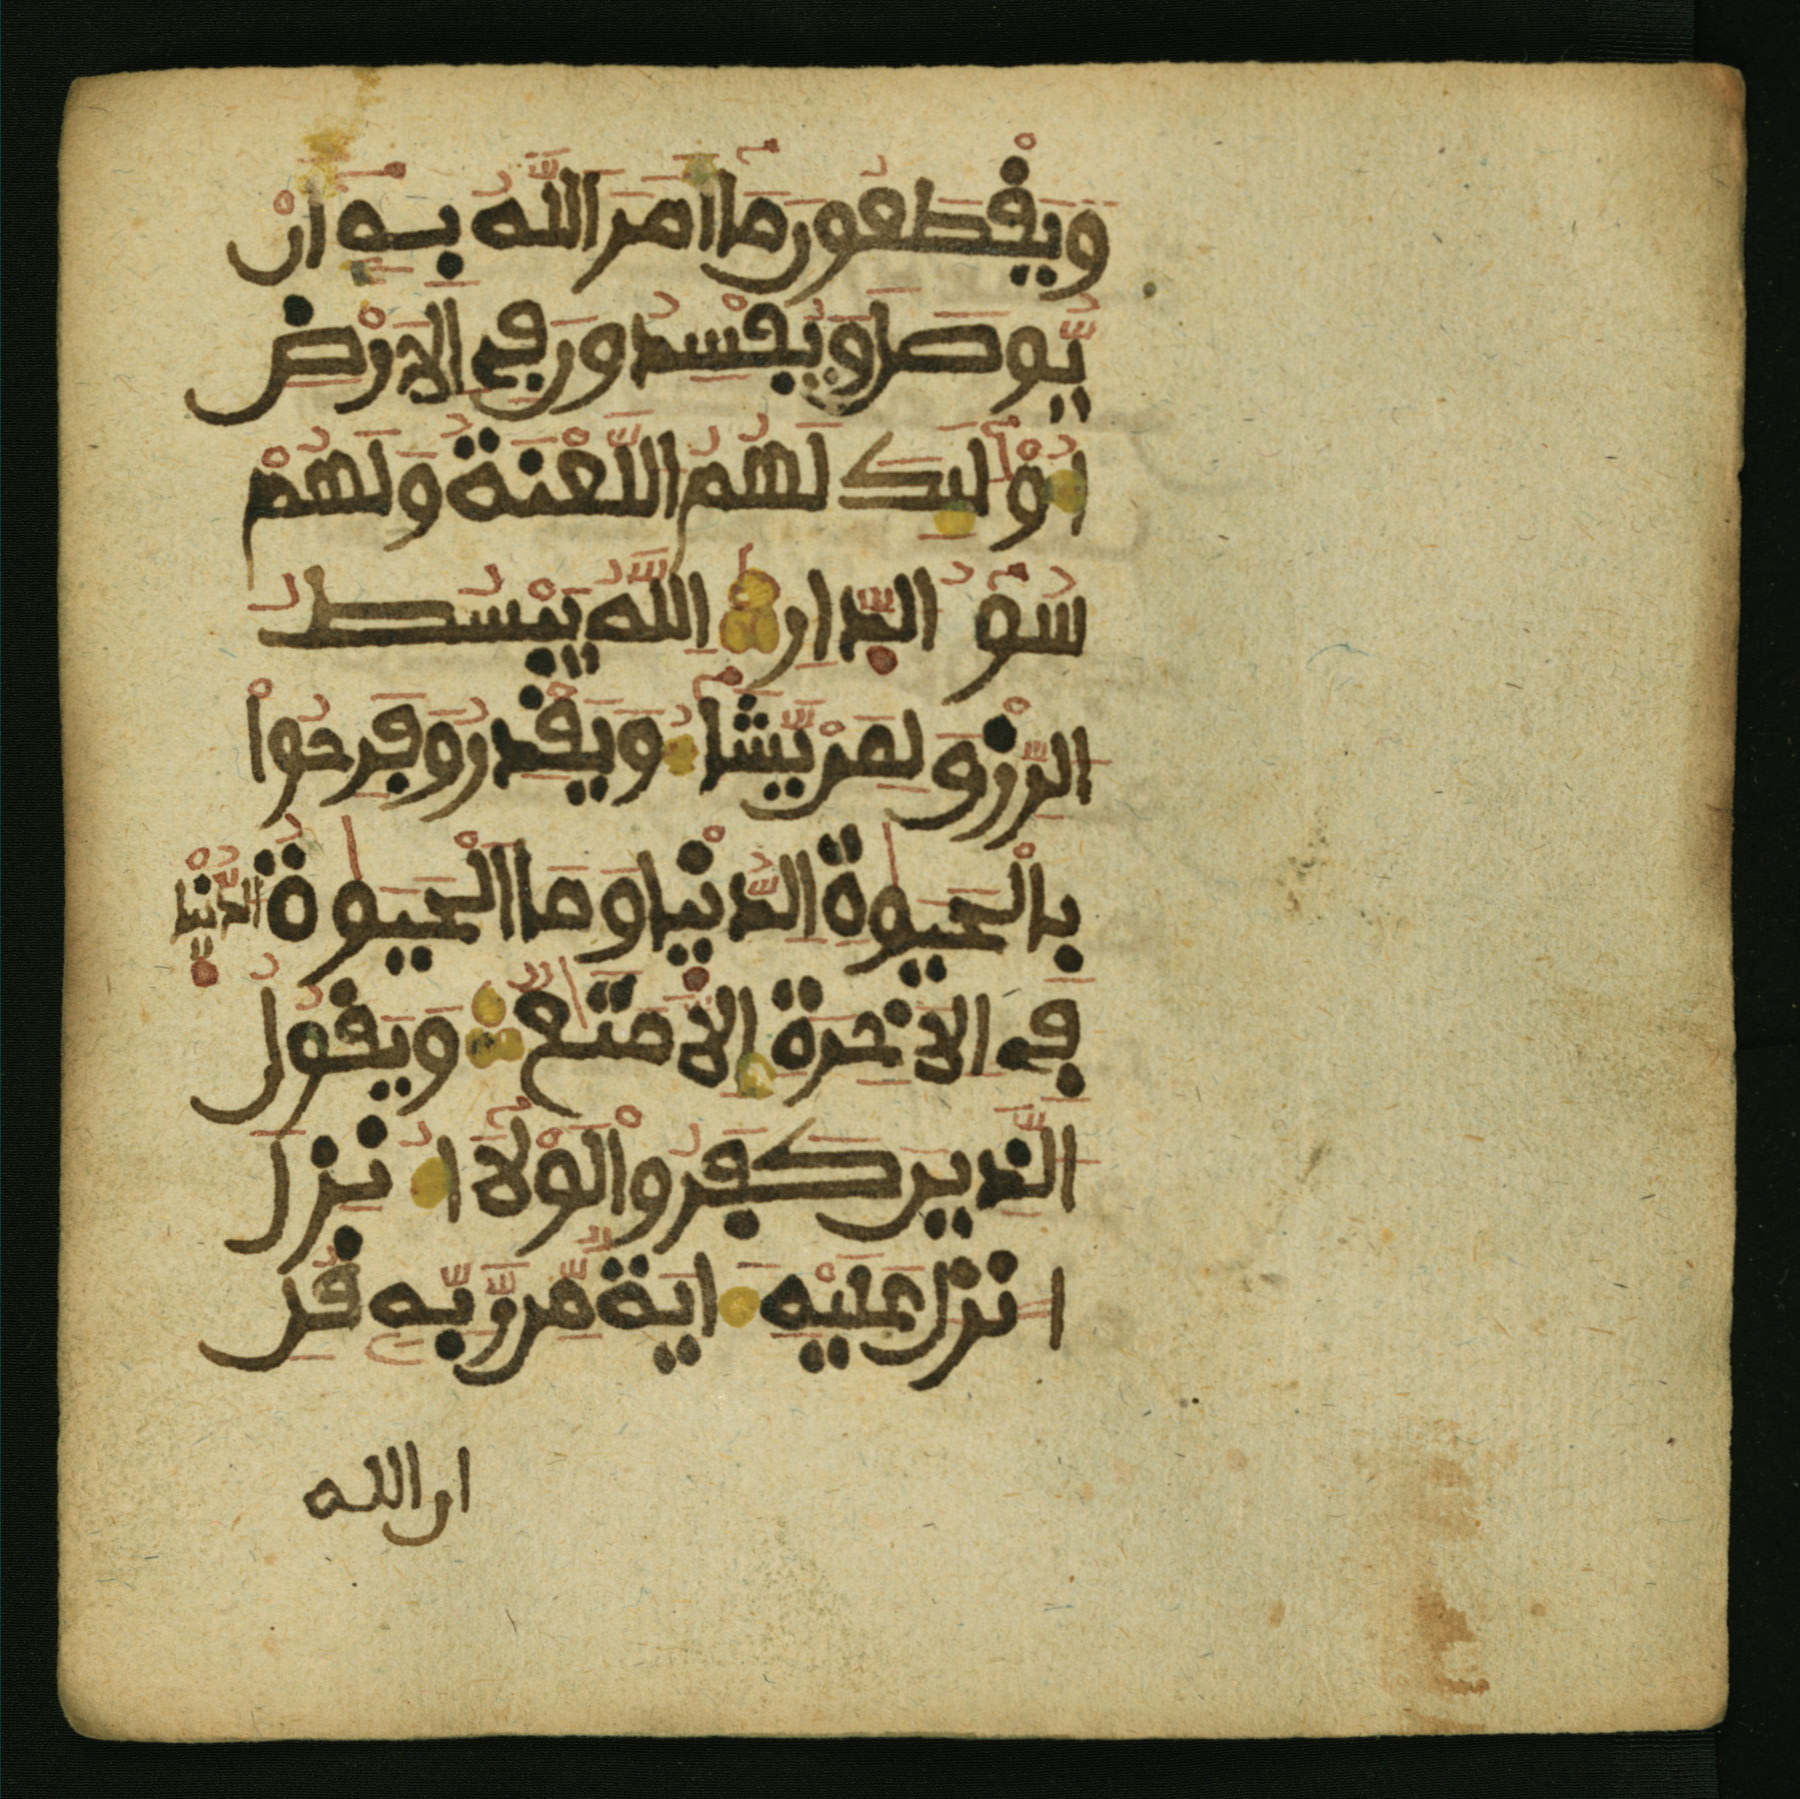 وَيَقْطَعُونَ مَا أَمَرَ اللَّهُ بِهِ أَنْ
يُّوصَلَ وَيُفْسِدُونَ فِي الَارْضِ
أُوْلَٰئِكَ لَهُمُ اللَّعْنَةُ وَلَهُمْ
سُوءُ الدِّارِ اللَّهُ يَبْسُطُ
الرِّزْقَ لِمَنْ يَّشَاءُ وَيَقْدِرُ وَفَرِحُواْ
بِالْحَيَوٰةِ الدُّنْيَا وَمَا الْحَيَوٰةُ الدُّنْيَا
فِي الَاخِرَةِ إِلَّا مَتَٰعٌ وَيَقُولُ
الَّذِينَ كَفَرُواْ لَوْلَا أُنزِلَ
عَلَيْهِ ءَايَةٌ مِّن رَّبِّهِ قُلِ
ان الله